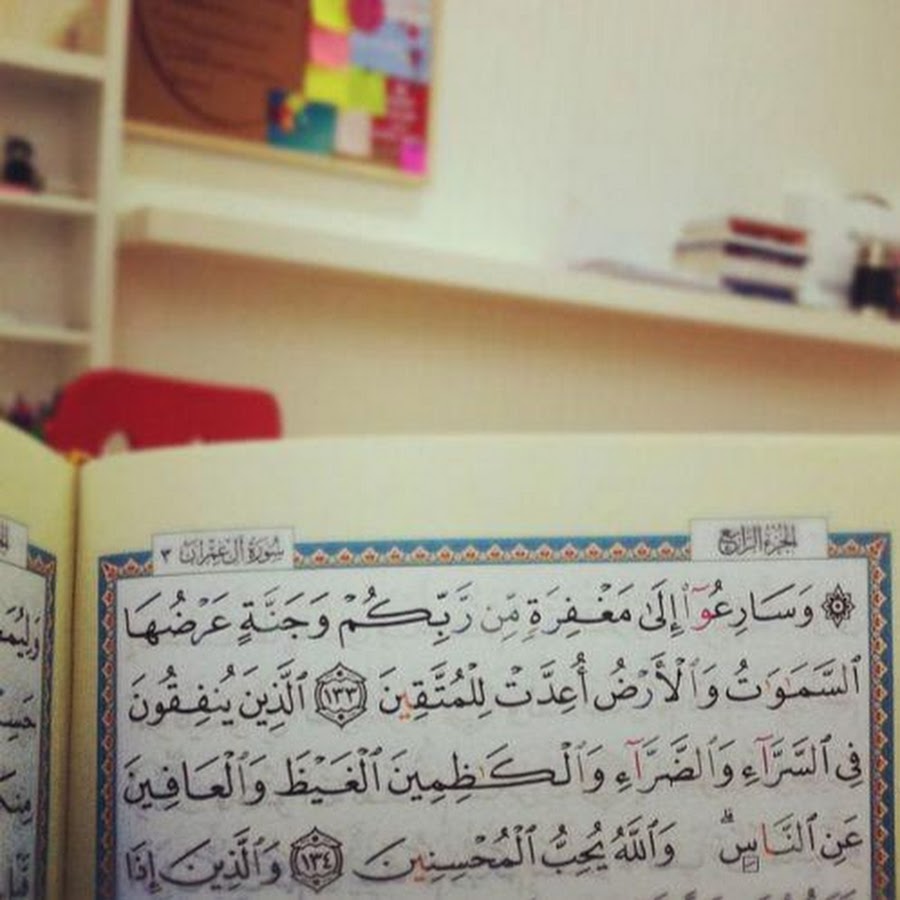 سُورَةُ آلِ عِمْرَان ٣
الجُزْءُ الرَّابِعُ
۞ وَسَارِعُوٓا۟ إِلَىٰ مَغْفِرَةٍ مِّن رَّبِّكُمْ وَجَنَّةٍ عَرْضُهَا
ٱلسَّمَٰوَٰتُ وَٱلْأَرْضُ أُعِدَّتْ لِلْمُتَّقِينَ ١٣٣ ٱلَّذِينَ يُنفِقُونَ
فِى ٱلسَّرَّآءِ وَٱلضَّرَّآءِ وَٱلْكَٰظِمِينَ ٱلْغَيْظَ وَٱلْعَافِينَ
عَنِ ٱلنَّاسِ ۗ وَٱللَّهُ يُحِبُّ ٱلْمُحْسِنِينَ ١٣٤ وَٱلَّذِينَ إِذَا